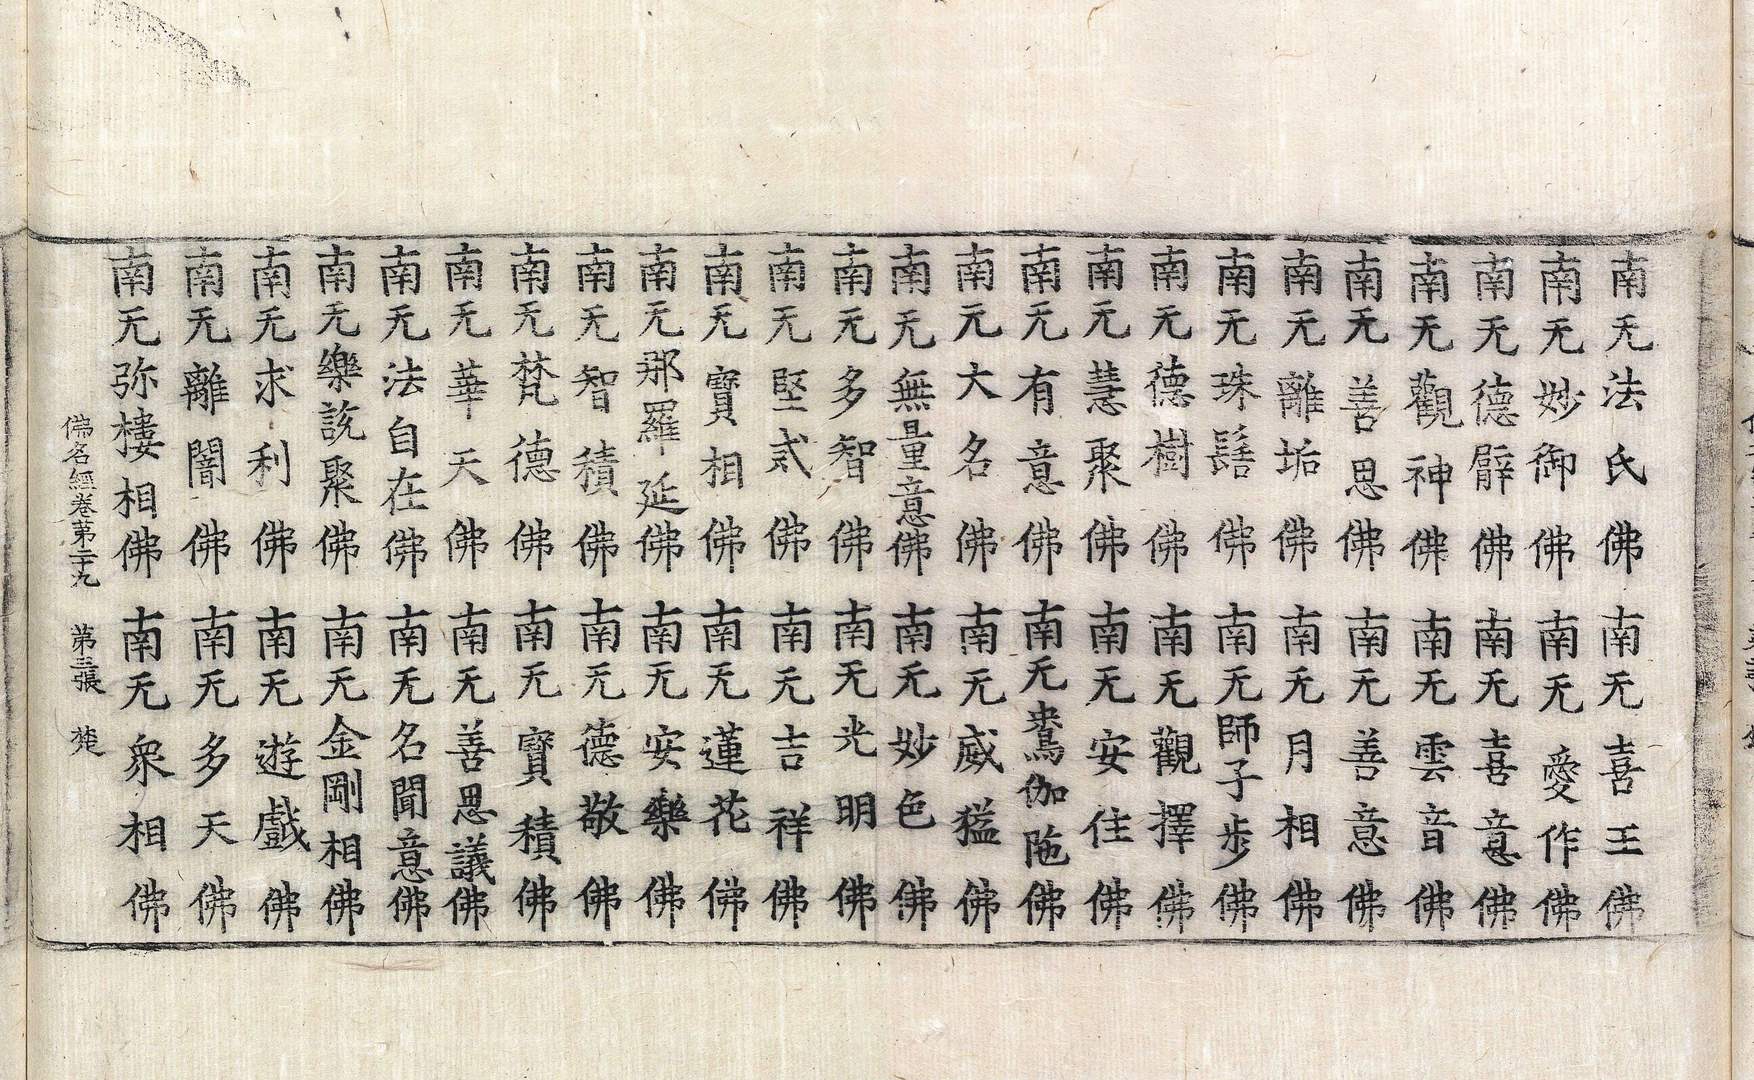 南无法氏佛南无喜王佛
南无妙御佛南无愛作佛
南无德臂佛南无喜意佛
南无觀神佛南无雲音佛
南无善思佛南无善意佛
南无離垢佛南无月相佛
南无珠髻佛南无師子步佛
南无德樹佛南无觀擇佛
南无慧聚佛南无安住佛
南无有意佛南无鴦伽陁佛
南无大名佛南无威猛佛
南无無量意佛南无妙色佛
南无多智佛南无光明佛
南无堅式佛南无吉祥佛
南无寶相佛南无蓮花佛
南无那羅延佛南无安樂佛
南无智積佛南无德敬佛
南无梵德佛南无寶積佛
南无華天佛南无善思議佛
南无法自在佛南无名聞意佛
南无樂說聚佛南无金剛相佛
南无求利佛南无遊戲佛
南无離闇佛南无多天佛
南无弥樓相佛南无衆相佛
佛名經卷第二十九 第三張 楚